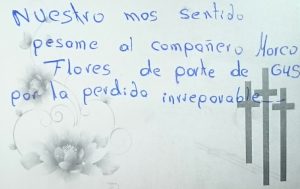 Nuestro mos sentido
pesome al compoñero Morco
Flores de porte de G4S
por la perdida inreporable